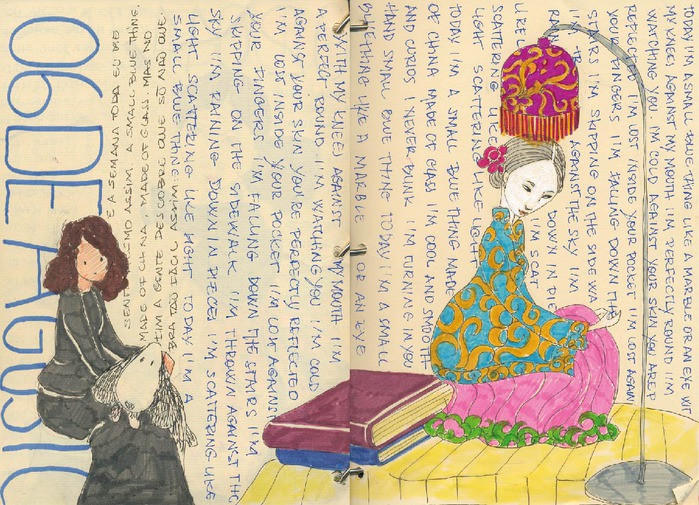 06 DE AGOSTO
E A SEMANA TODA EU ME
SENTI MESMO ASSIM. A SMALL BLUE THING.
MADE OF CHINA. MADE OF GLASS. MAS NO
FIM A GENTE DESCOBRE QUE SÓ NÃO QUE
BRA TÃO FÁCIL ASSIM!
TODAY I'M A SMALL BLUE THING LIKE A MARBLE OR AN EYE WIT
MY KNEES AGAINST MY MOUTH I'M PERFECTLY ROUND I'M
WATCHING YOU I'M COLD AGAINST YOUR SKIN YOU ARE P
REFLECTED I'M LOST INSIDE YOUR POCKET I'M LOST AGAIN
YOUR FINGERS I'M FALLING DOWN THE
STAIRS I'M SKIPPING ON THE SIDEWA
I'M AGAINST THE SKY I'M
DOWN IN PIE
I'M SCAT
LIKE
SCATTERING LIKE
LIGHT SCATTERING LIKE LIGHT
TODAY I'M A SMALL BLUE THING MADE
OF CHINA MADE OF GLASS I'M COOL AND SMOOTH
AND CURIOS I NEVER BLINK I'M TURNING IN YOU
HAND SMALL BLUE THING TODAY I'M A SMALL
BLUE THING LIKE A MARBLE OR AN EYE
WITH MY KNEES AGAINST MY MOUTH I'M
A PERFECT ROUND I'M WATCHING YOU I'M COLD
AGAINST YOUR SKIN YOU'RE PERFECTLY REFLECTED
I'M LOST INSIDE YOUR POCKET I'M LOST AGAINST
YOUR FINGERS I'M FALLING DOWN THE STAIRS I'M
SKIPPING ON THE SIDEWALK I'M THROWN AGAINST THE
SKY I'M RAINING DOWN IN PIECES I'M SCATTERING LIKE
LIGHT SCATTERING LIKE LIGHT TODAY I'M A
SMALL BLUE THING